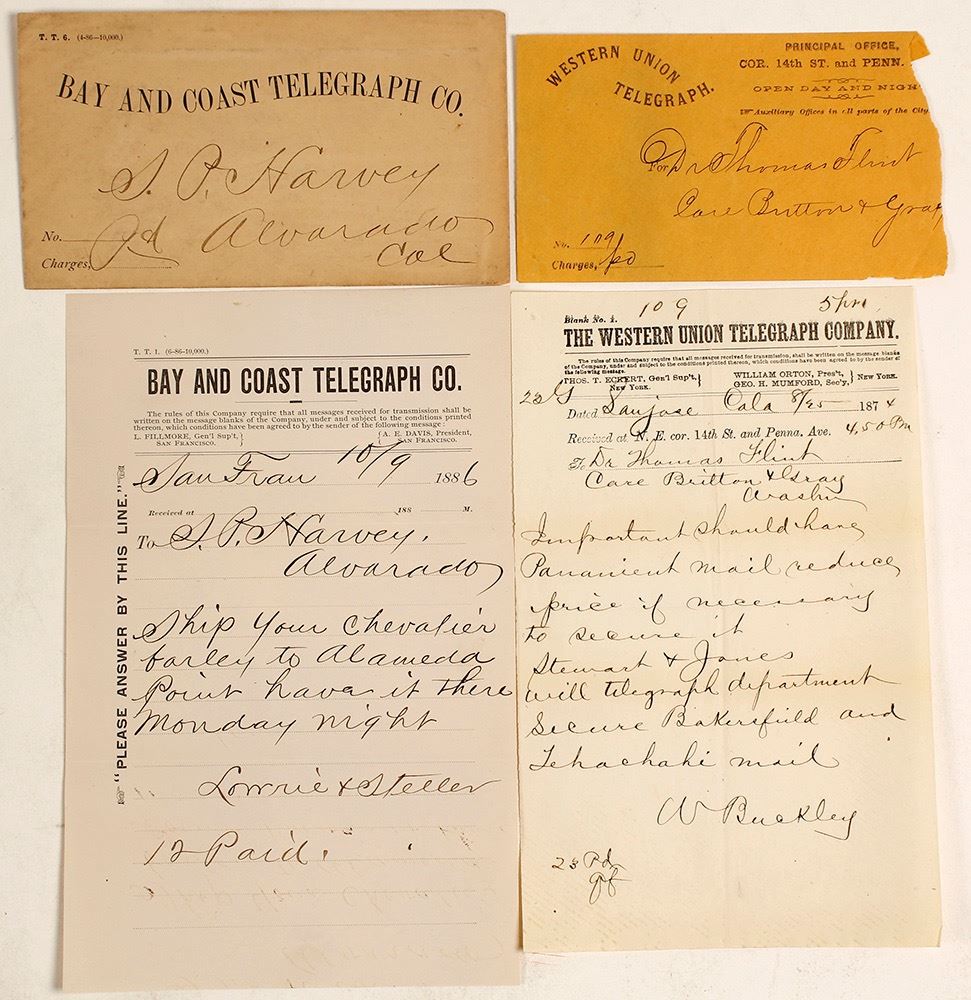 T. T. 6. (4-86—10,000.)
BAY AND COAST TELEGRAPH CO.
S. P. Harvey
No. Pd Alvarado
Charges, Cal
WESTERN UNION
TELEGRAPH.
PRINCIPAL OFFICE,
COR. 14th ST. and PENN.
OPEN DAY AND NIGH
Auxiliary Offices in all parts of the City
For Dr Thomas Flint
Care Britton & Gray
No. 109
Charges, pd
T. T. 1. (6-86-10,000.)
BAY AND COAST TELEGRAPH CO.
The rules of this Company require that all messages received for transmission shall be
written on the message blanks of the Company, under and subject to the conditions printed
thereon, which conditions have been agreed to by the sender of the following message:
L. FILLMORE, Gen'l Sup't, } { A. E. DAVIS, President,
SAN FRANCISCO. SAN FRANCISCO.
San Fran 10/9 1886
Received at 188 M.
To S. P. Harvey.
Alvarado
Ship your chevalier
barley to Alameda
Point have it there
Monday night
Lowrie & Steller
12 Paid.
"PLEASE ANSWER BY THIS LINE."
109 5 pm
Blank No. 1.
THE WESTERN UNION TELEGRAPH COMPANY.
The rules of this Company require that all messages received for transmission, shall be written on the message blanks
of the Company, under and subject to the conditions printed thereon, which conditions have been agreed to by the sender of
the following message.
THOS. T. ECKERT, Gen'l Sup't, } NEW YORK.
WILLIAM ORTON, Pres't, } NEW YORK.
GEO. H. MUMFORD, Sec'y,
Dated San jose Cala 8/25 1874
Received at N. E. cor. 14th St. and Penna. Ave. 4,50 Pm
To Dr Thomas Flint
Care Britton & Gray
Washn
Important should have
Panamient mail reduce
price if necessary
to secure it
Stewart & Jones
will telegraph department
Secure Bakersfield and
Tehachahi mail
W Buckley
23 Pd